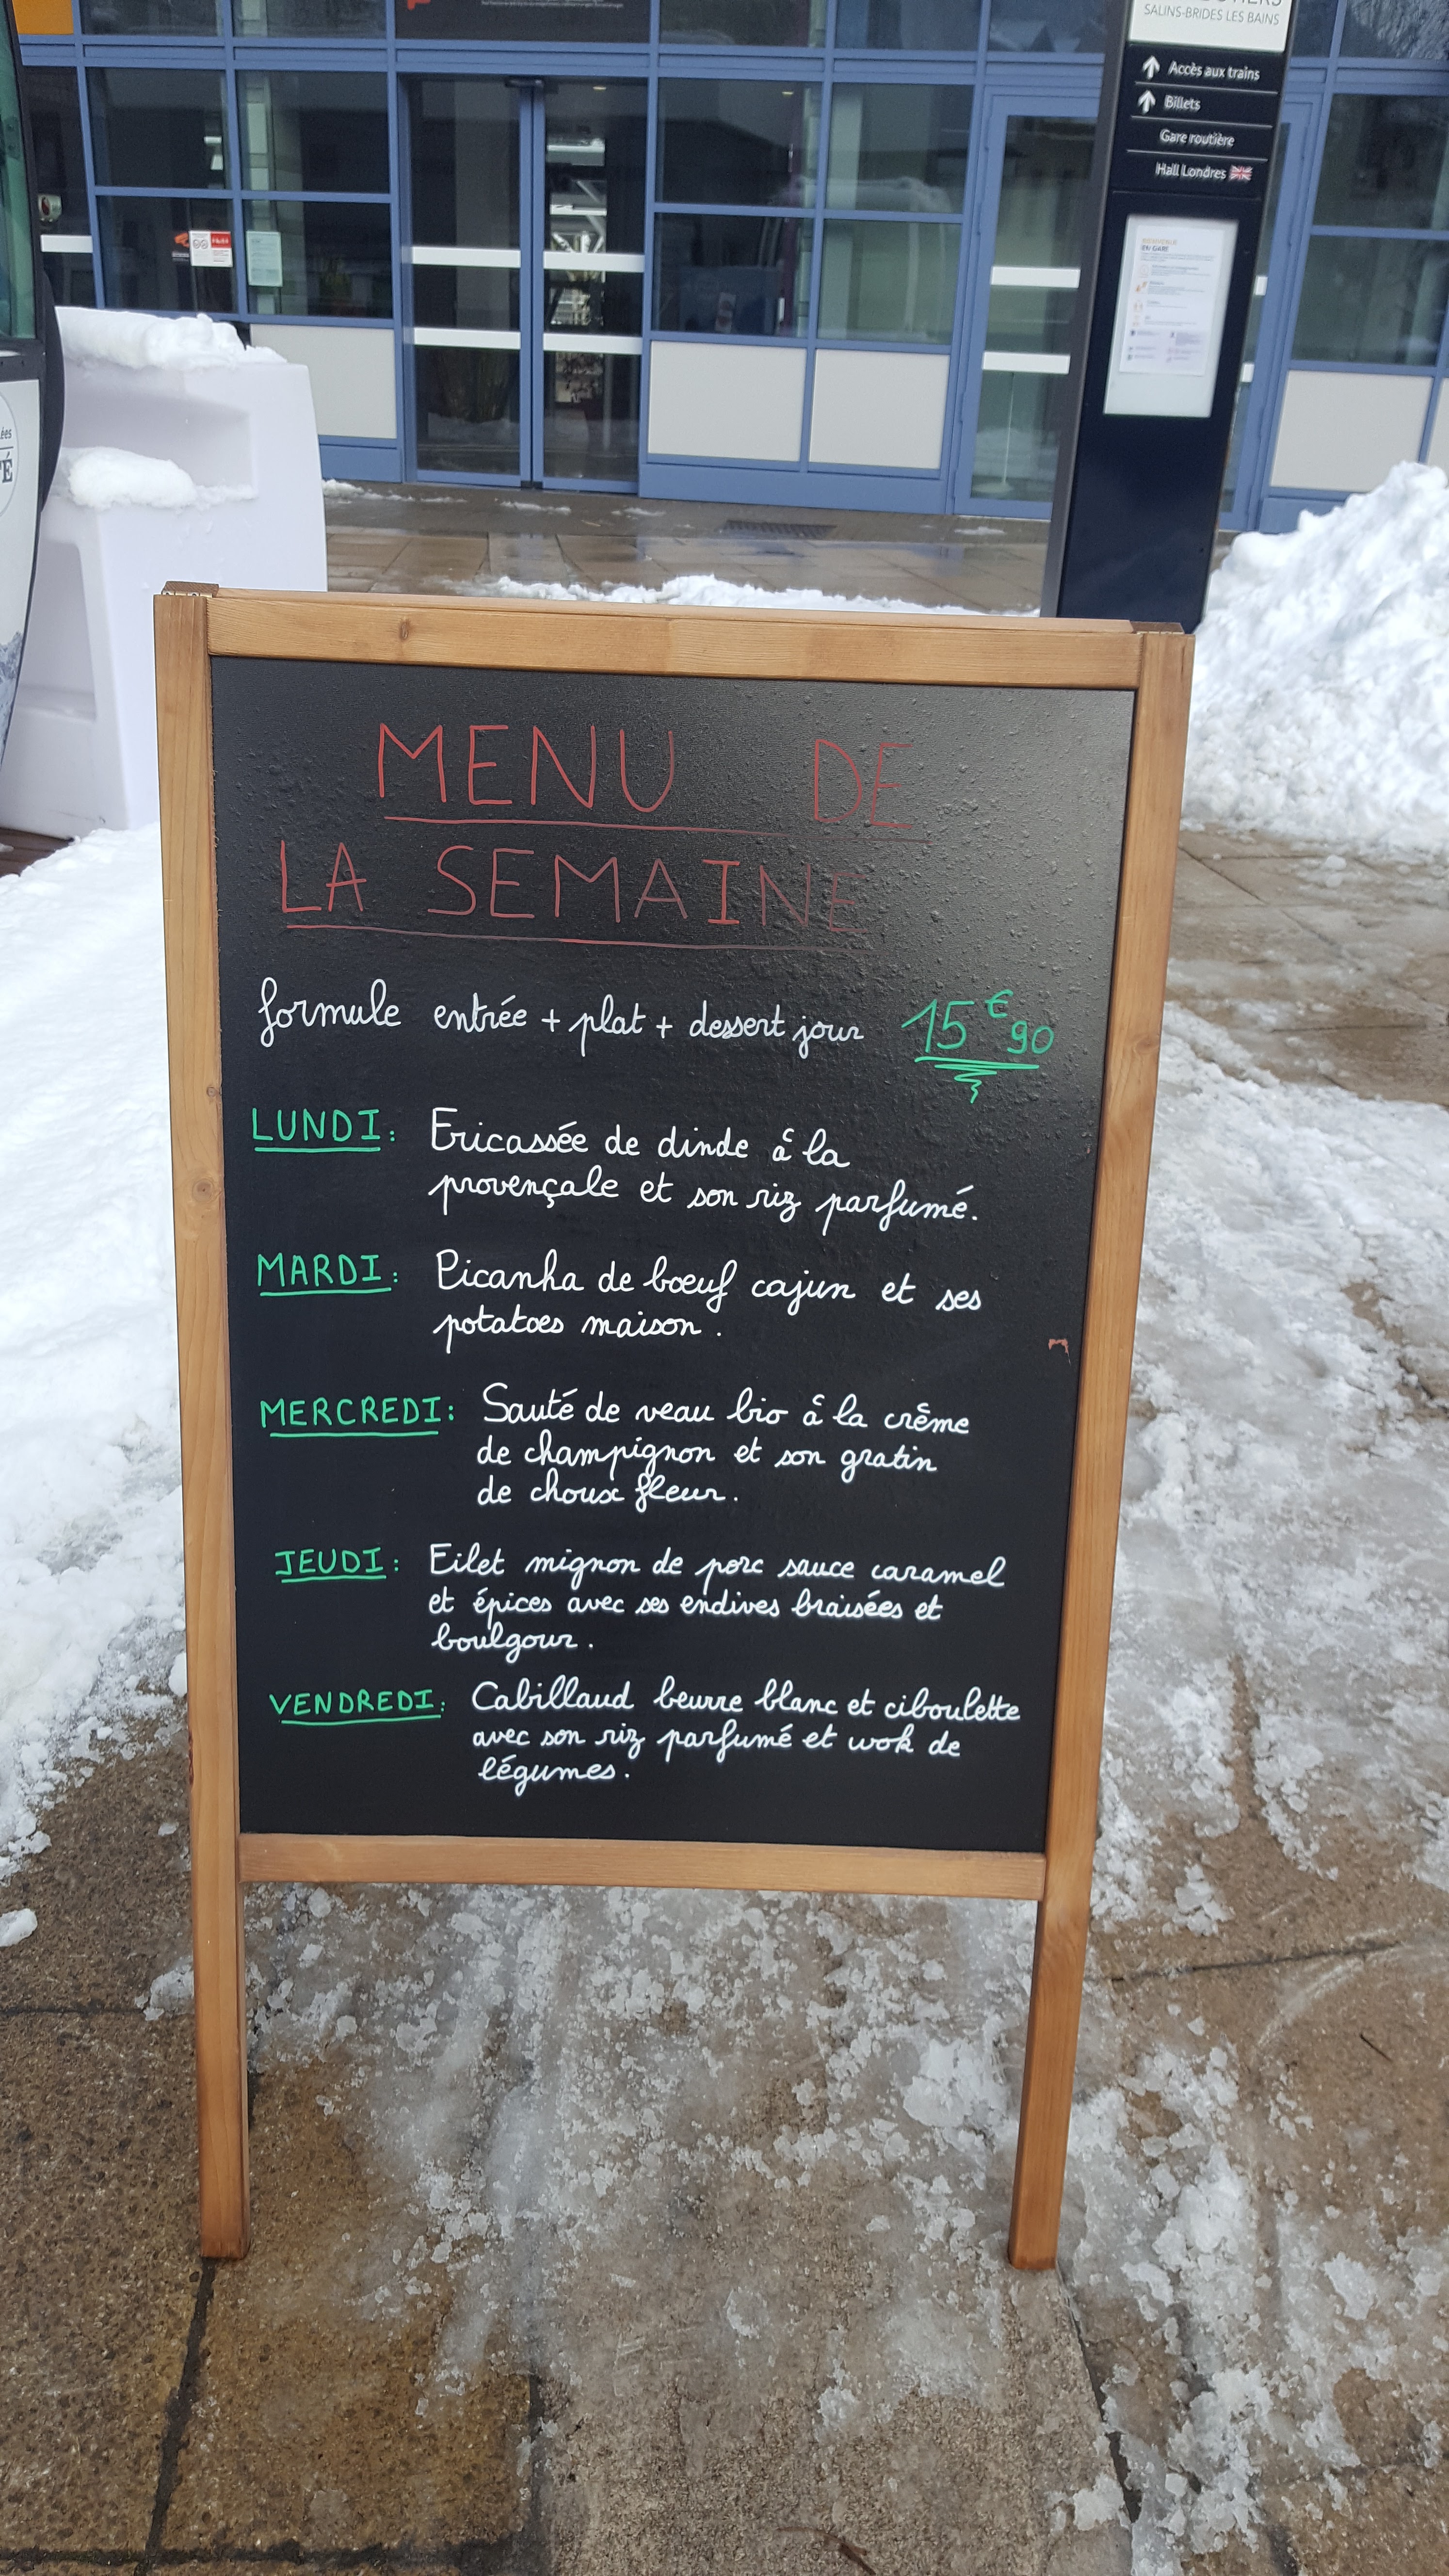 SALINS-BRIDES LES BAINS
Accès aux trains
Billets
Gare routière
Hall Londres
BIENVENUE
EN GARE
MENU DE
LA SEMAINE
formule entrée + plat + dessert jour 15€90
LUNDI: Fricassée de dinde à la
provençale et son riz parfumé.
MARDI: Picanha de bœuf cajun et ses
potatoes maison.
MERCREDI: Sauté de veau bio à la crème
de champignon et son gratin
de choux fleur.
JEUDI: Filet mignon de porc sauce caramel
et épices avec ses endives braisées et
boulgour.
VENDREDI: Cabillaud beurre blanc et ciboulette
avec son riz parfumé et wok de
légumes.